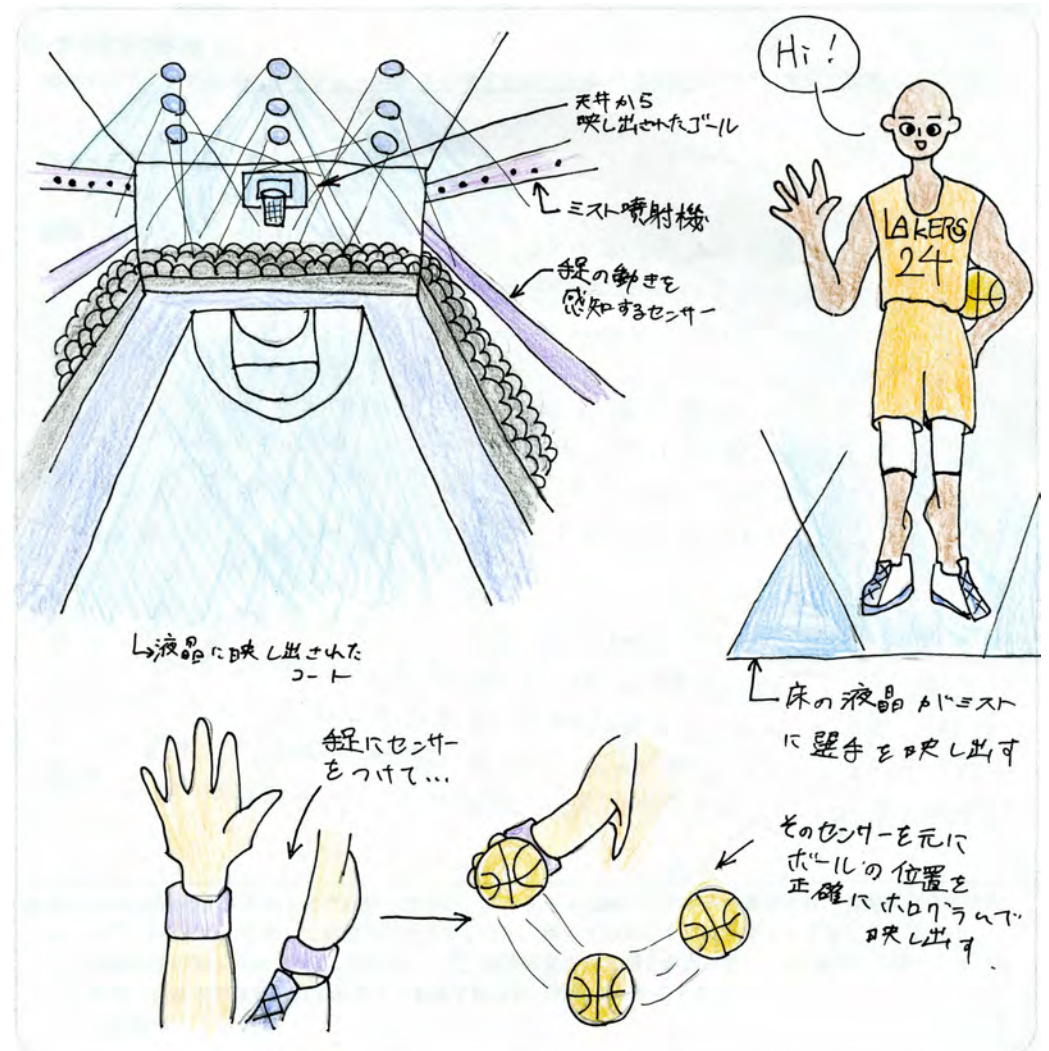 天井から
映し出されたゴール
ミスト噴射機
手足の動きを
感知するセンサー
Hi!
LAKERS
24
液晶に映し出された
コート
床の液晶がミスト
に選手を映し出す
手足にセンサー
をつけて...
そのセンサーを元に
ボールの位置を
正確にホログラムで
映し出す.